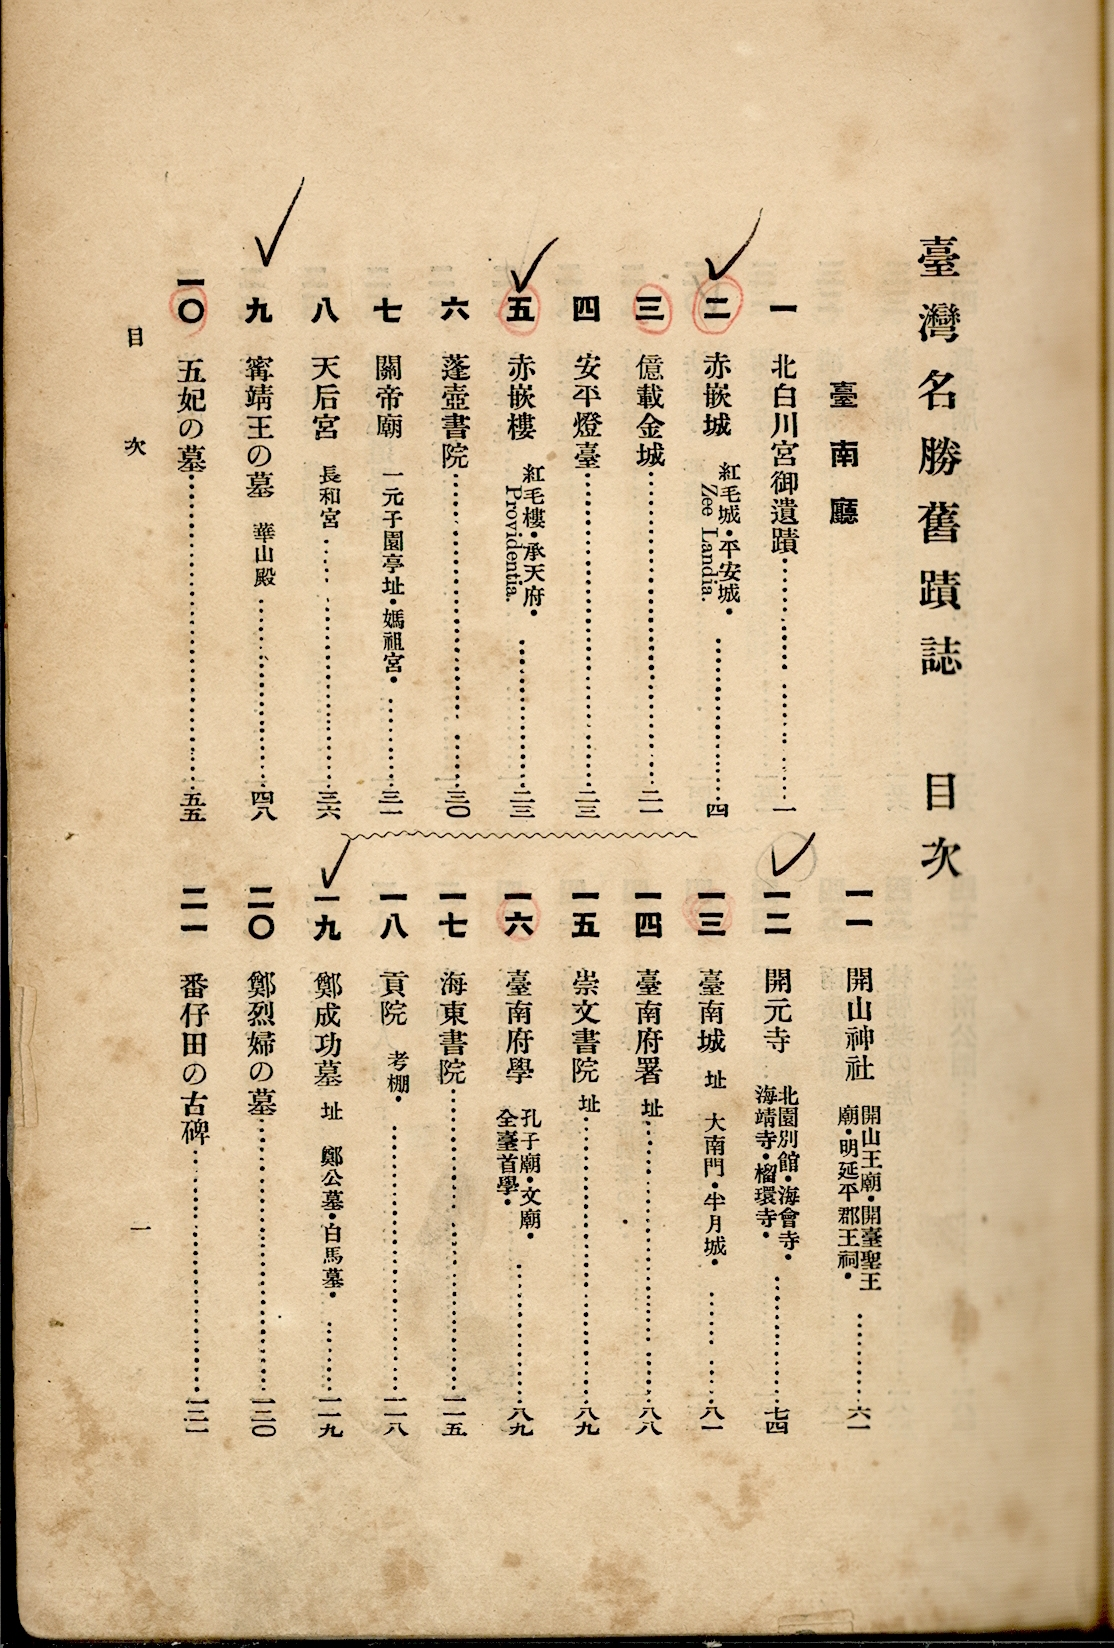 臺灣名勝舊蹟誌　目次
臺南廳
一　北白川宮御遺蹟……一
二　赤嵌城　紅毛城・平安城・Zee Landia.……四
三　億載金城……二一
四　安平燈臺……二三
五　赤嵌樓　紅毛樓・承天府・Providentia.……二三
六　蓬壺書院……三〇
七　關帝廟　一元子園亭址・媽祖宮・……三一
八　天后宮　長和宮……三六
九　寗靖王の墓　華山殿……四八
一〇　五妃の墓……五五
一一　開山神社　開山王廟・開臺聖王廟・明延平郡王祠・……六一
一二　開元寺　北園別館・海會寺・海靖寺・榴環寺・……七四
一三　臺南城址　大南門・半月城・……八一
一四　臺南府署址……八八
一五　崇文書院址……八九
一六　臺南府學　孔子廟・文廟・全臺首學・……八九
一七　海東書院……一一五
一八　貢院　考棚・……一一八
一九　鄭成功墓址　鄭公墓・白馬墓・……一一九
二〇　鄭烈婦の墓……一二〇
二一　番仔田の古碑……一二一
目次
一